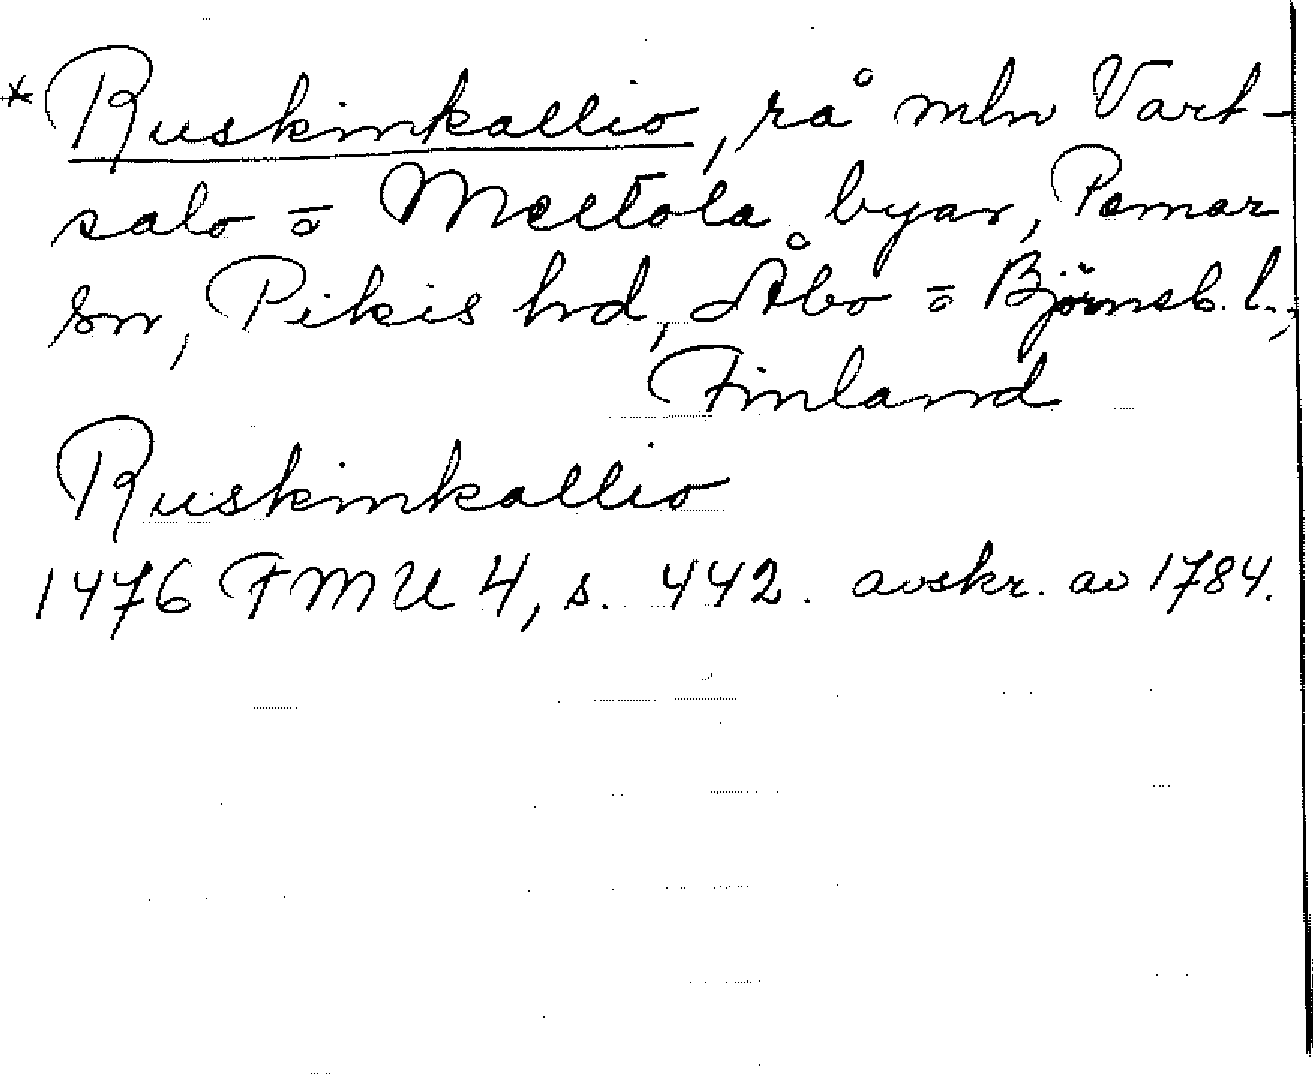 * Ruskinkallio, rå mln Vart-
salo o Meltola byar, Pemar
sn, Pikis hd, Åbo o Björnsb. l.,
Finland
Ruskinkallio
1476 FMU 4, s. 442. avskr. av 1784.